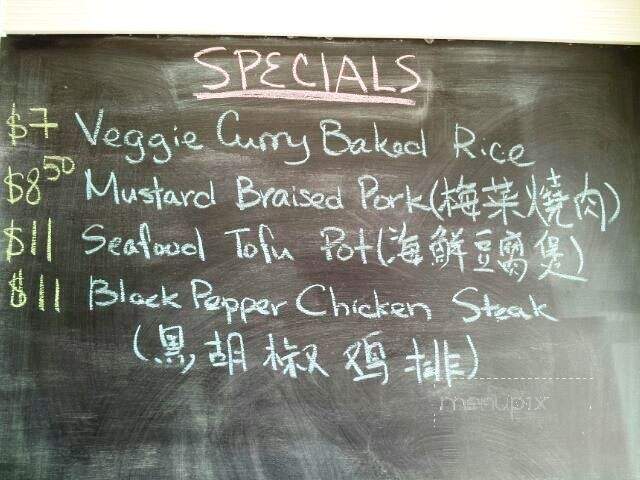 SPECIALS
$7 Veggie Curry Baked Rice
$8.50 Mustard Braised Pork(梅菜燒肉)
$11 Seafood Tofu Pot(海鮮豆腐煲)
$11 Black Pepper Chicken Steak
(黑胡椒鸡排)
menupix